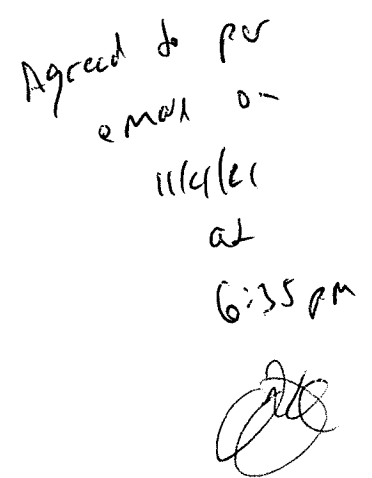 Agreed to per
email on
11/4/21
at
6:35 pm